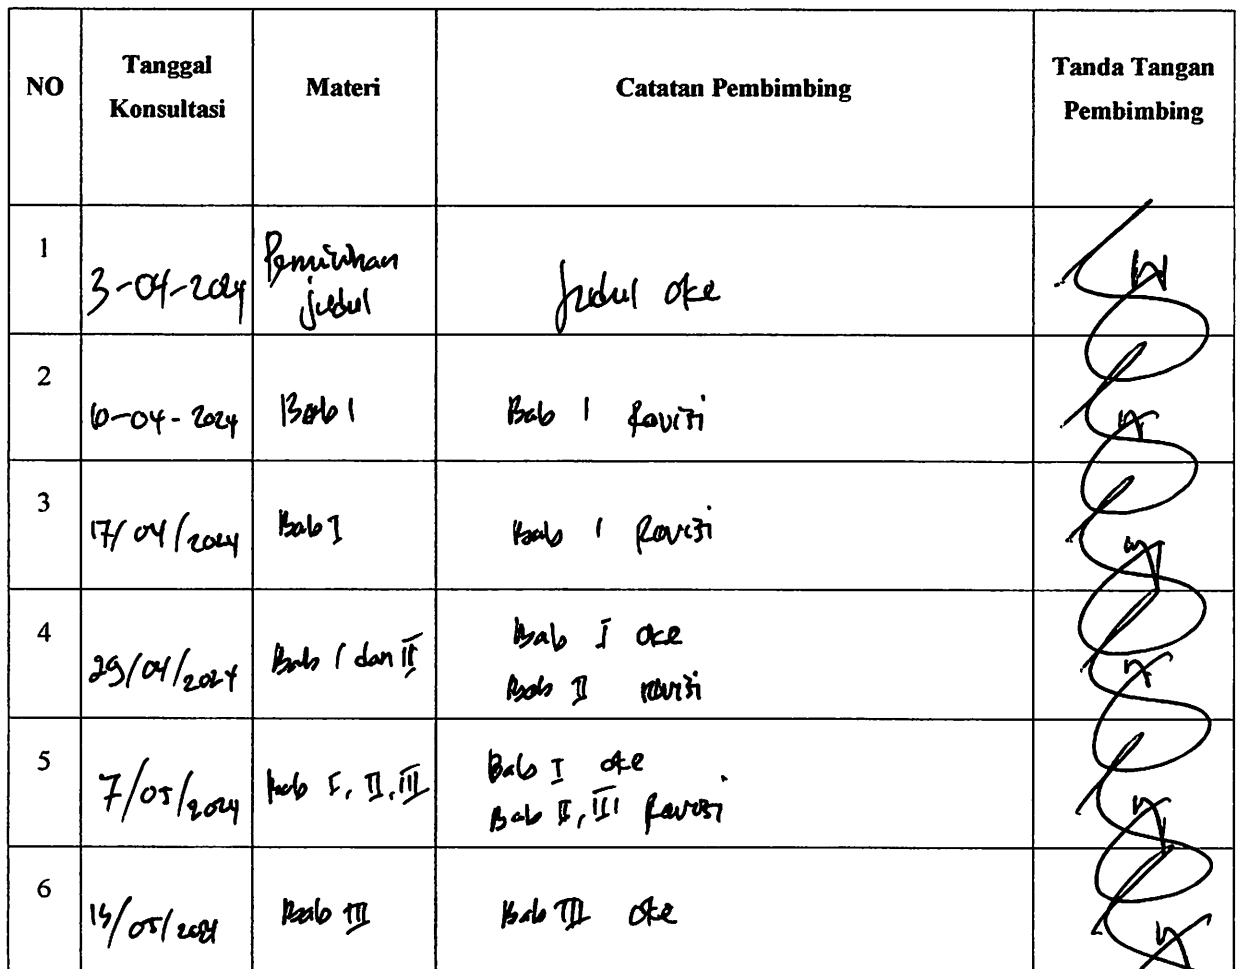 NO Tanggal Konsultasi Materi Catatan Pembimbing Tanda Tangan Pembimbing
1 3-04-2024 Pemilihan judul Judul oke
2 10-04-2024 Bab 1 Bab 1 Revisi
3 17/04/2024 Bab I Bab 1 Revisi
4 29/04/2024 Bab I dan II Bab I oke
Bab II revisi
5 7/05/2024 Bab I, II, III Bab I oke
Bab II, III Revisi
6 /05/2024 Bab III Bab III oke